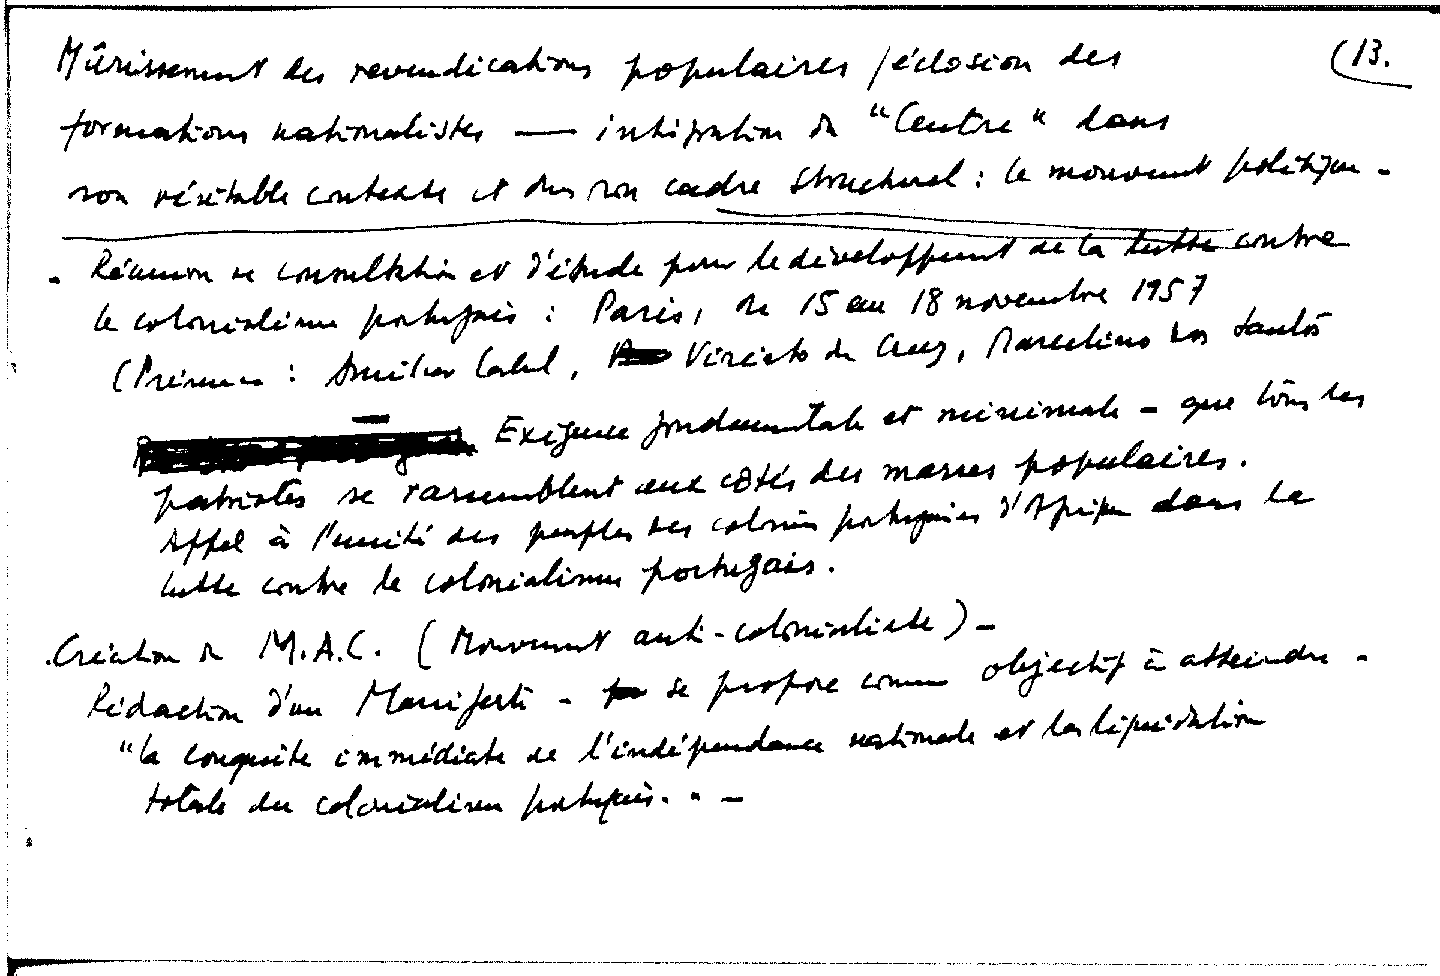 (13.
Mûrissement des revendications populaires / éclosion des
formations nationalistes — intégration du "Centre" dans
son véritable contexte et dans son cadre structurel : le mouvement politique -
- Réunion de consultation et d'étude pour le développement de la lutte contre
le colonialisme portugais : Paris, du 15 au 18 novembre 1957
(Présence : Amilcar Cabral, Viriato da Cruz, Marcelino dos Santos
Exigence fondamentale et minimale - que tous les
patriotes se rassemblent aux côtés des masses populaires.
Appel à l'unité des peuples des colonies portugaises d'Afrique dans la
lutte contre le colonialisme portugais.
. Création du M.A.C. (Mouvement anti-colonialiste) -
Rédaction d'un Manifeste - se propose comme objectif à atteindre -
"la conquête immédiate de l'indépendance nationale et la liquidation
totale du colonialisme portugais. " -